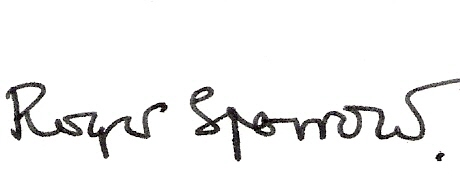 Roger Sparrow.